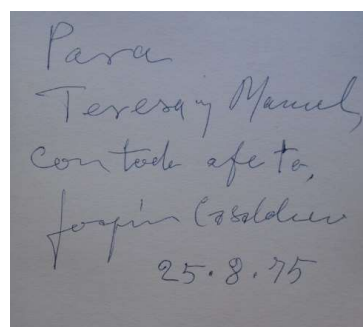 Para
Teresa y Manuel,
con todo afecto,
Joaquín Casalduero
25.8.75